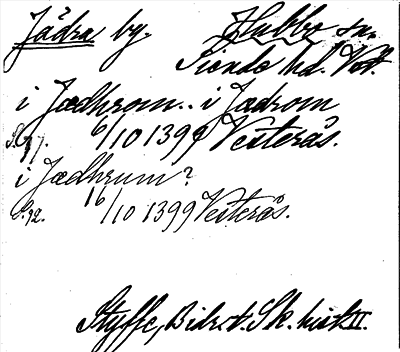 Jädra by. Hubbo sn.
Siende hd. Vstm.
i Jædhrom.. i Jædrom
S. 91. 6/10 1399 Vesterås.
i Jædhrum?
S. 92. 16/10 1399 Vesterås.
Styffe, Bidr. t. Sk. hist II.